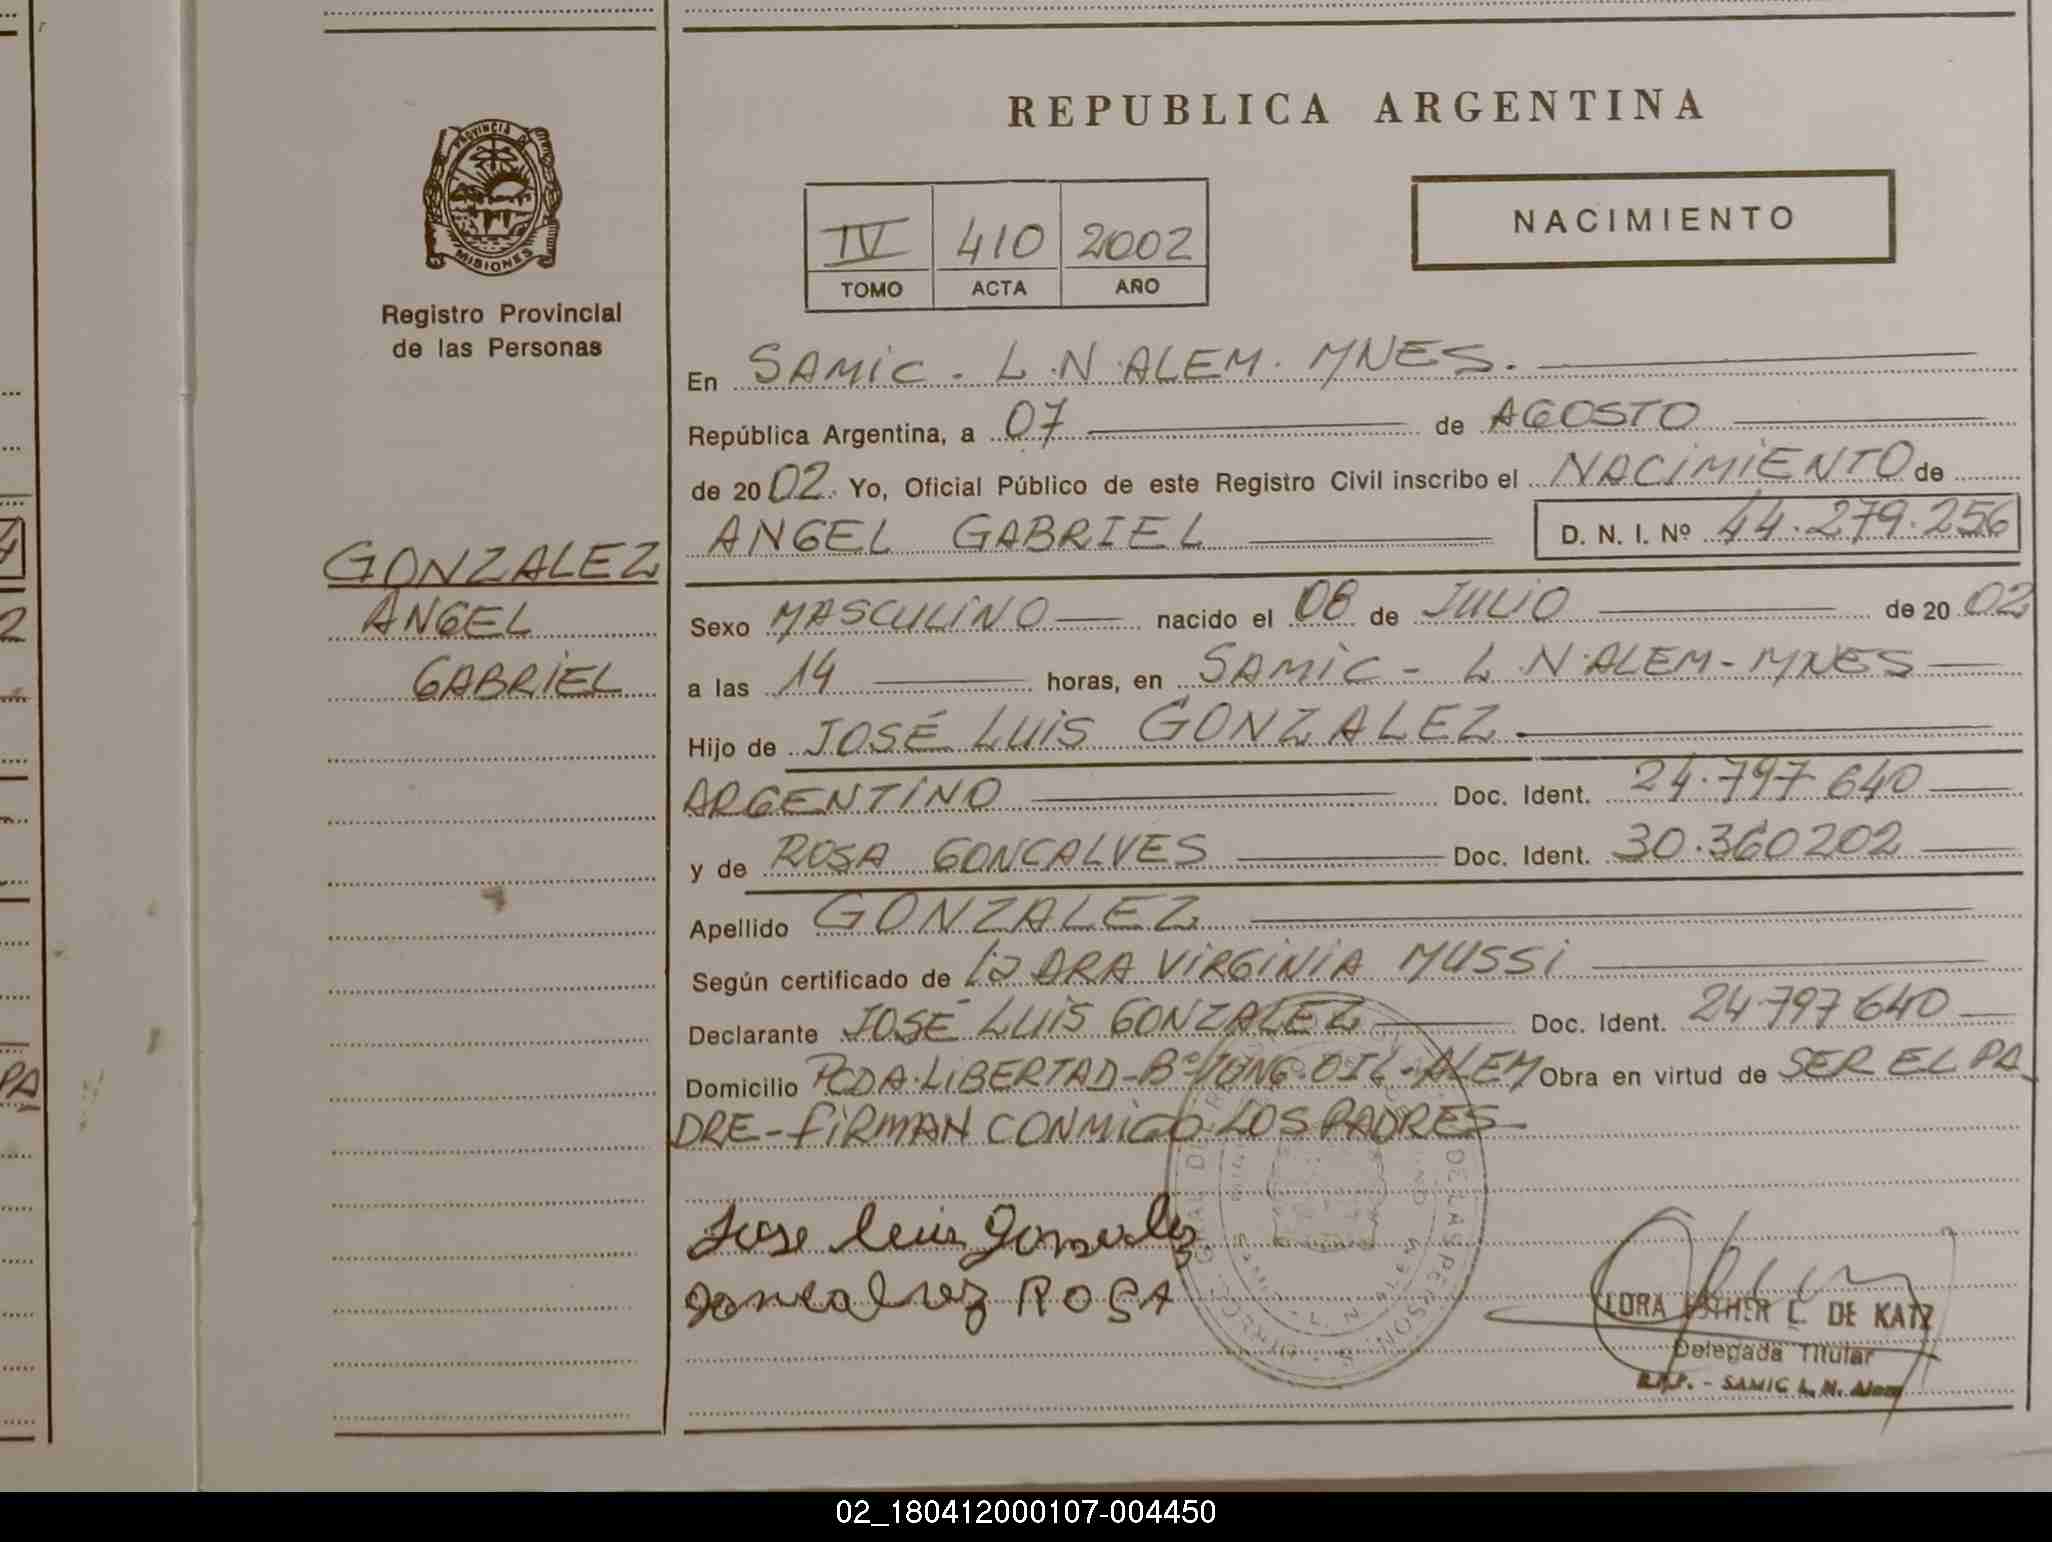 REPUBLICA ARGENTINA
PROVINCIA DE
MISIONES
Registro Provincial
de las Personas
IV 410 2002
TOMO ACTA AÑO
NACIMIENTO
En SAMIC - L.N.ALEM. MNES.
República Argentina, a 07 de AGOSTO
de 2002. Yo, Oficial Público de este Registro Civil inscribo el NACIMIENTO de
ANGEL GABRIEL D. N. I. Nº 44.279.256
GONZALEZ
ANGEL
GABRIEL
Sexo MASCULINO nacido el 08 de JULIO de 2002
a las 14 horas, en SAMIC - L.N.ALEM - MNES
Hijo de JOSÉ LUIS GONZALEZ
ARGENTINO Doc. Ident. 24.797.640
y de ROSA GONCALVES Doc. Ident. 30.360202
Apellido GONZALEZ
Según certificado de DRA VIRGINIA MUSSI
Declarante JOSÉ LUIS GONZALEZ Doc. Ident. 24797640
Domicilio PCDA. LIBERTAD - Bº ALEM Obra en virtud de SER EL PA
DRE - FIRMAN CONMIGO LOS PADRES
Jose Luis Gonzalez
Goncalvez ROSA
DE KATZ
Delegada Titular
R.P.P. - SAMIC L. N. Alem
PA
02_180412000107-004450